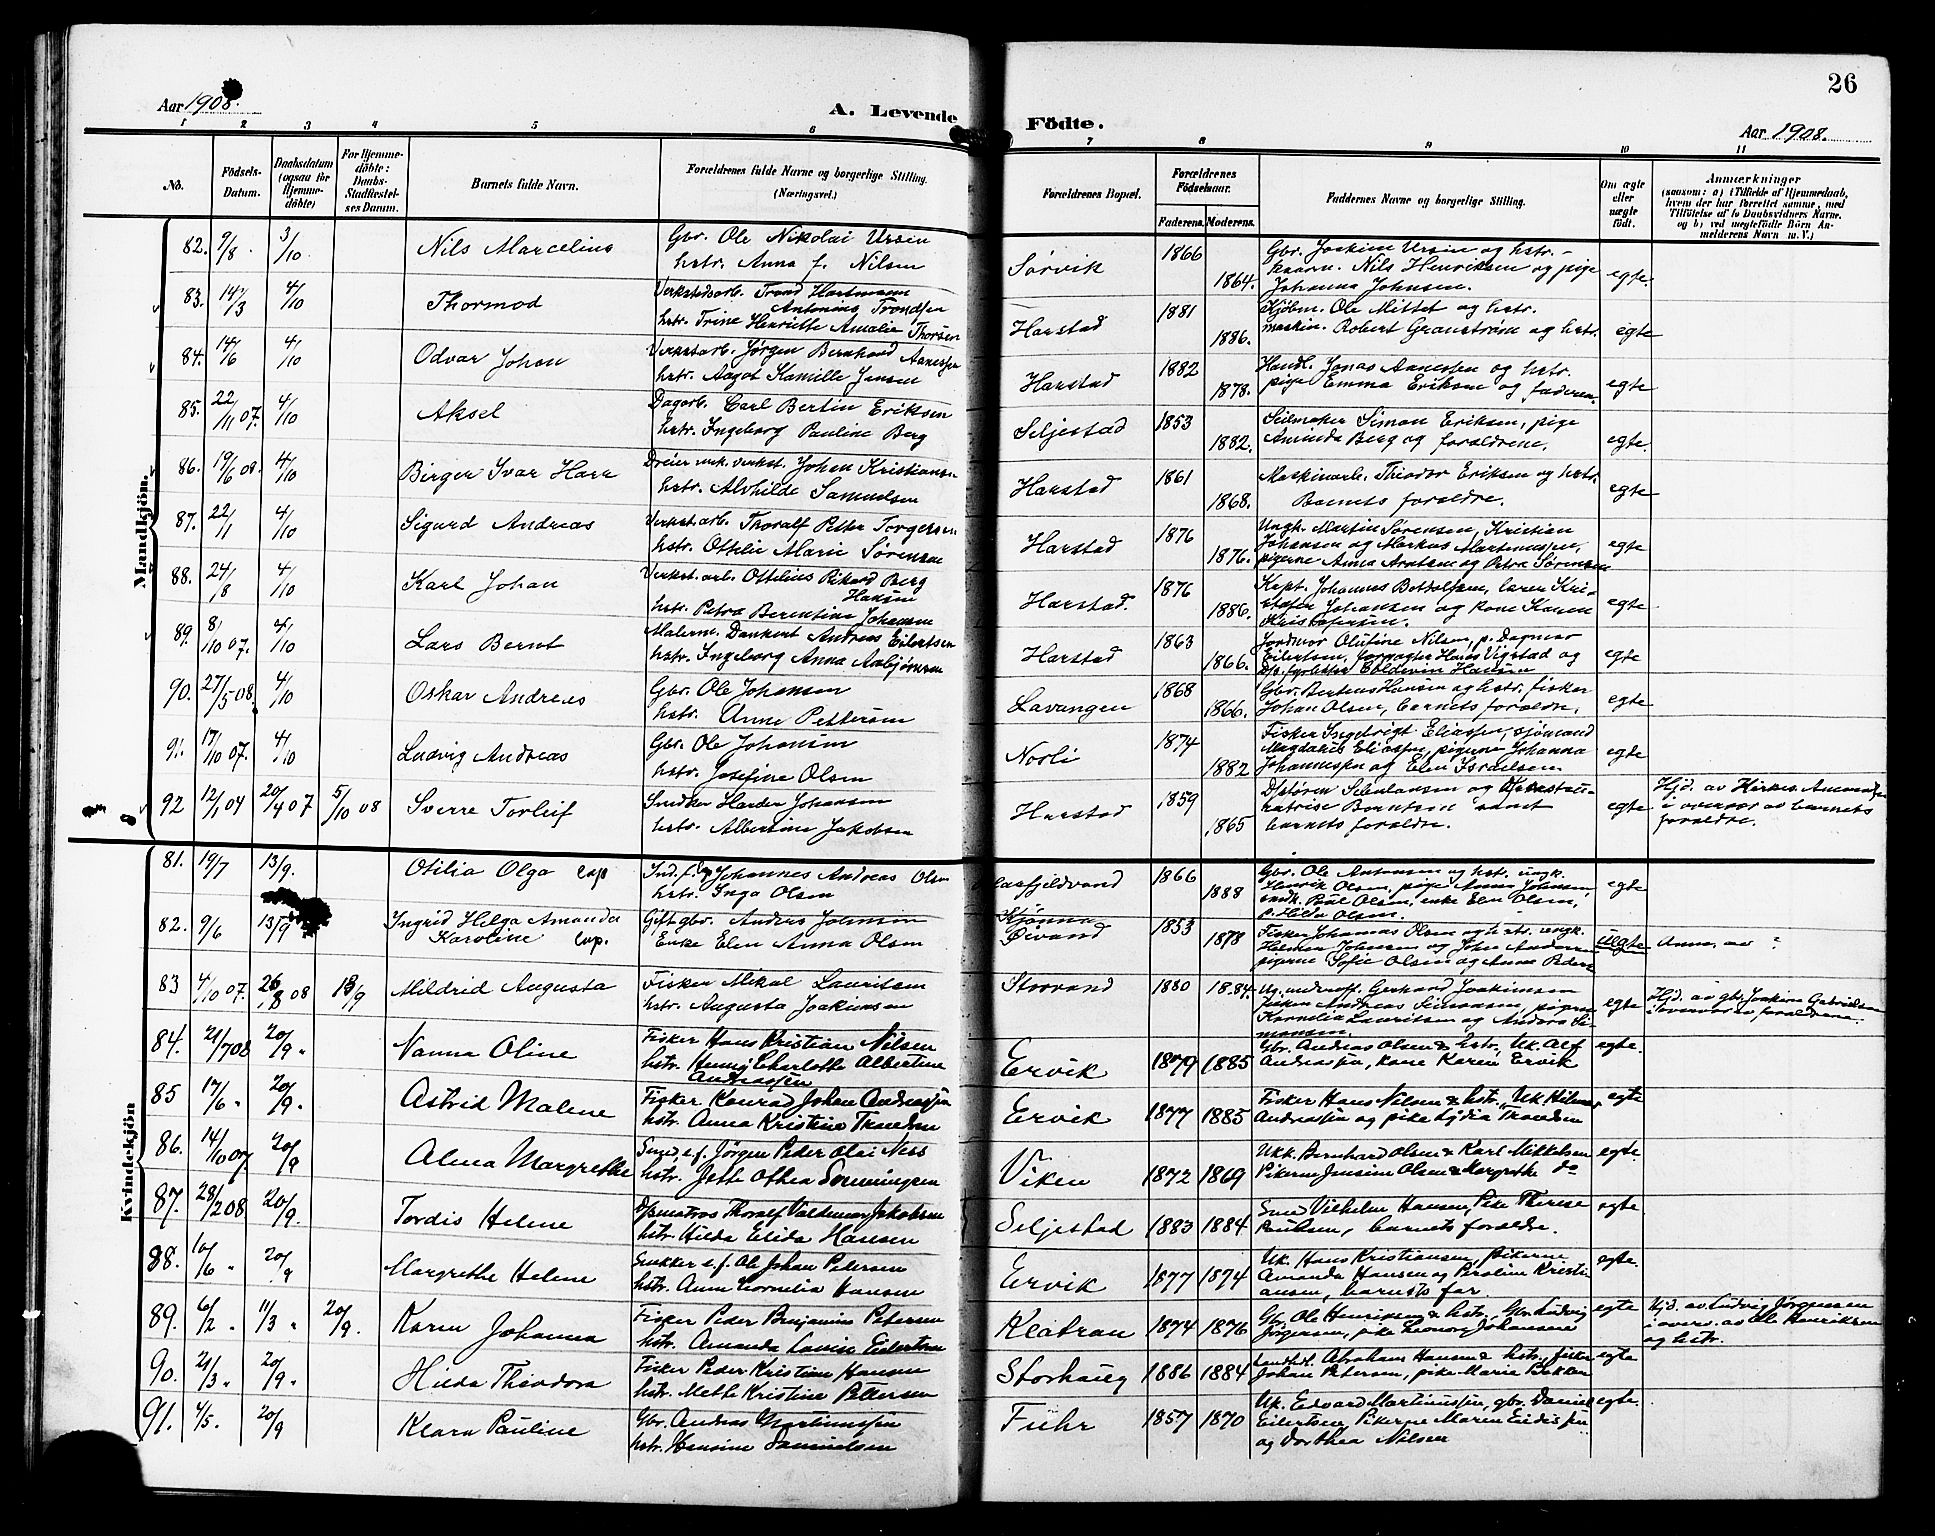 26
Aar 1908.
A. Levende Födte.
Aar 1908.
1 2 3 4 5 6 7 8 9 10 11
No.
Födsels-Datum.
Daabsdatum (ogsaa for Hjemme-döbte)
For Hjemme-döbte: Daabs-Stadfæstel-ses Datum.
Barnets fulde Navn.
Forældrenes fulde Navne og borgerlige Stilling. (Næringsvei.)
Forældrenes Bopæl.
Forældrenes Födselsaar.
Faderens. Moderens.
Faddernes Navne og borgerlige Stilling.
Om ægte eller uægte födt.
Anmærkninger
(saasom: a) i Tilfælde af Hjemmedaab, hvem der har forrettet samme, med Tilföielse af to Daabsvidners Navne, og b) ved uægtefödte Börn An-melderens Navn m. V.)
Mandkjön.
82. 9/8 3/10 Nils Marcelius
Gbr. Ole Nikolai Ursin
hstr. Anna f. Nilsen
Sørvik 1866 1864.
Gbr. Joakim Ursin og hstr. -
Nils Henriksen og pige
Johanna Johnsen.
egte
83. 14/3 4/10 Thormod
Verkstedsarb. Trond Hartmann
Antonius Trondsen
hstr. Trine Henriette Amalie Thorsen
Harstad 1881 1886.
Kjøbm. Ole Mittet og hstr.
maskin. Robert Granstrøm og hstr.
egte
84. 14/6 4/10 Odvar Johan
Verkstarb. Jørgen Bernhard Aanesen
hstr. Aagot Kamille Jensen
Harstad 1882 1878.
Handl. Jonas Aanesen og hstr.
pige Emma Eriksen og faderen
egte
85. 22/11 07. 4/10 Aksel
Dagarb. Carl Bertin Eriksen
hstr. Ingeborg Pauline Berg
Seljestad 1853 1882.
Seilmaker Simon Eriksen, pige
Aminda Berg og forældrene.
egte
86. 19/6 08. 4/10 Birger Ivar Harr
Dreier mek. verkst. Johan Kristiansen
hstr. Alvhilde Samuelsen
Harstad 1861 1868.
Maskinarb. Theodor Eriksen og hstr.
Barnets forældre.
egte
87. 22/1 4/10 Sigurd Andreas
Verkst.arb. Thoralf Petter Torgersen
hstr. Ottilie Marie Sørensen
Harstad 1876 1876.
Ungk. Martin Sørensen, Kristian
Johansen og Markus Martinussen,
pigerne Anna Arntsen og Petra Sørensen
egte
88. 24/8 4/10 Karl Johan
Verkst.arb. Ottelius Rikard Berg
Hansen
hstr. Petra Berentine Johansen
Harstad. 1876 1886.
Kapt. Johannes Bottolfsen, lærer Kri-
stofer Johansen og kone Karen
Kristofersen.
egte
89. 8/10 07. 4/10 Lars Bernt
Malerm. Dankert Andreas Eilertsen
hstr. Ingeborg Anna Asbjørnsen
Harstad 1863 1866.
Jordmor Olufine Nilsen, p. Dagmar
Eilertsen, Hans Vigstad og
Hansen
egte
90. 27/5 08. 4/10 Oskar Andreas
Gbr. Ole Johansen
hstr. Anne Pettersen
Lavangen 1868 1866.
Gbr. Berteus Hansen og hstr. fisker
Johan Olsen, barnets forældre.
egte
91. 17/10 07. 4/10 Ludvig Andreas
Gbr. Ole Johansen
hstr. Josefine Olsen
Norli 1874 1882
Fisker Ingebrigt Eliassen, sjømand
Magdalus Eliassen, pigerne Johanna
Johannessen og Elen Israelsen.
egte
92 12/1 04 20/4 07 5/10 08 Sverre Torleif
Snedker Harder Johansen
hstr. Albertine Jakobsen
Harstad 1859 1865
barnets forældre.
egte
Hjd. av
i overvær av barnets
forældre.
Kvindekjön
81. 19/7 13/9. Otilia Olga lap
Ind. f. Johannes Andreas Olsen
hstr. Inga Olsen
1866 1888
Gbr. Ole Antonsen og hst. ungk.
Henrik Olsen, pige Anna Johansen
Olsen, enke Elen Olsen,
p. Hilda Olsen.
egte
82. 9/6 13/9 Ingrid Helga Amanda
Karoline lap.
Gift gbr. Anders Johnsen
Enke Elen Anna Olsen
Kjønna
Øivand 1853 1878
Fisker Johannes Olsen og hstr. ungk.
Helmer Johnsen og John Andersen
pigerne Sofie Olsen og Anna Peders
uegte
Anm. av ?
83 4/10 07. 26/8 08 13/9 Mildrid Augusta
Fisker Mikal Lauritsen
hstr. Augusta Joakimsen
Storvand 1880 1884.
Ug. underoff. Gerhard Joakimsen
fisker Andreas Simonsen, pigerne
Kornelia Lauritsen og Andora Si-
monsen
egte
Hjd. av gbr. Joakim Gabrielsen
i overvær av forældrene.
84. 21/7 08 20/9 " Nanna Oline
Fisker Hans Kristian Nilsen
hstr. Henny Charlotte Albertine
Andreassen
Ervik 1879 1885
Gbr. Andreas Olsen & hstr, Uk. Alf
Andreassen, kone Karen Ervik
egte.
85 17/6 " 20/9. Astrid Malene
Fisker Konrad Johan Andreassen
hstr. Anna Kristine Trondsen
Ervik 1877 1885
Fisker Hans Nilsen & hstr., Uk Hilmar
Andreassen og pike Lydia Trondsen
egte
86. 14/10 07 20/9 Alma Margrethe
Smed, s.f. Jørgen Peder Olai Ness
hstr. Jette Othea Sønningsen
Viken 1872 1869
Ukk. Bernhard Olsen & Karl Mikkelsen
Pikerne Jensine Olsen & Margrethe do
egte.
87. 28/2 08 20/9. Tordis Helene
Dpsmatros Thoralf Valdemar Jakobsen
hstr. Hilda Elida Hansen
Seljestad 1883 1884
Smed Vilhelm Hansen, Pike Therese
Paulsen, barnets forældre.
egte
88. 10/6 " 20/9 Margrethe Helene
Snekker s.f. Ole Johan Petersen
hstr. Anna Cornelia Hansen
Ervik 1877 1874
Uk. Hans Kristiansen, pikerne
Amanda Hansen og Peroline Kristi-
ansen, barnets far.
egte.
89. 6/2 " 11/3 " 20/9. Karen Johanna
Fisker Peder Benjamin Petersen
hstr. Amanda Lovise Eilertsen
Klatran 1874 1876
Gbr. Ole Henriksen & hstr. Gbr. Ludvig
Jørgensen, pike Leonora Johansen
egte
Hjd. av Ludvig Jørgensen
i overv. av Ole Henriksen
og hstr.
90. 21/3 " 20/9 " Hilda Theodora
Fisker Peder Kristian Hansen
hstr. Mette Kristine Petersen
Storhaug 1886 1884
Landhdl. Abraham Hansen & hstr, fisker
Johan Petersen, pike Marie
egte
91. 4/5. 20/9 Klara Pauline
Gbr. Andreas Martinussen
hstr. Hansine Danielsen
Fuhr 1857 1870
Uk. Edvard Martinussen, gbr. Daniel
Eilertsen, Pikerne Maren Eidissen
og Dorthea Nilsen
egte.